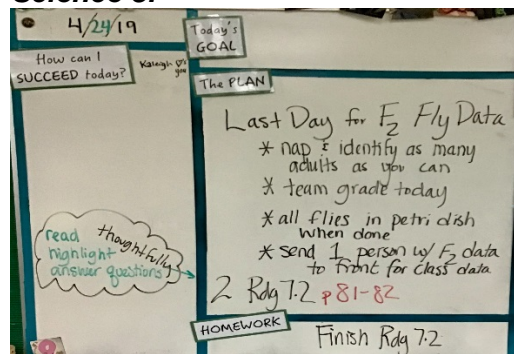 4/24/19
Today's
GOAL
How can I
SUCCEED today?
Kaleigh ♡'s
you
The PLAN
Last Day for F₂ Fly Data
* nap & identify as many
adults as you can
* team grade today
* all flies in petri dish
when done
* send 1 person w/ F₂ data
to front for class data
read thoughtfully
highlight
answer questions
2 Rdg 7.2 p 81-82
HOMEWORK
Finish Rdg 7.2